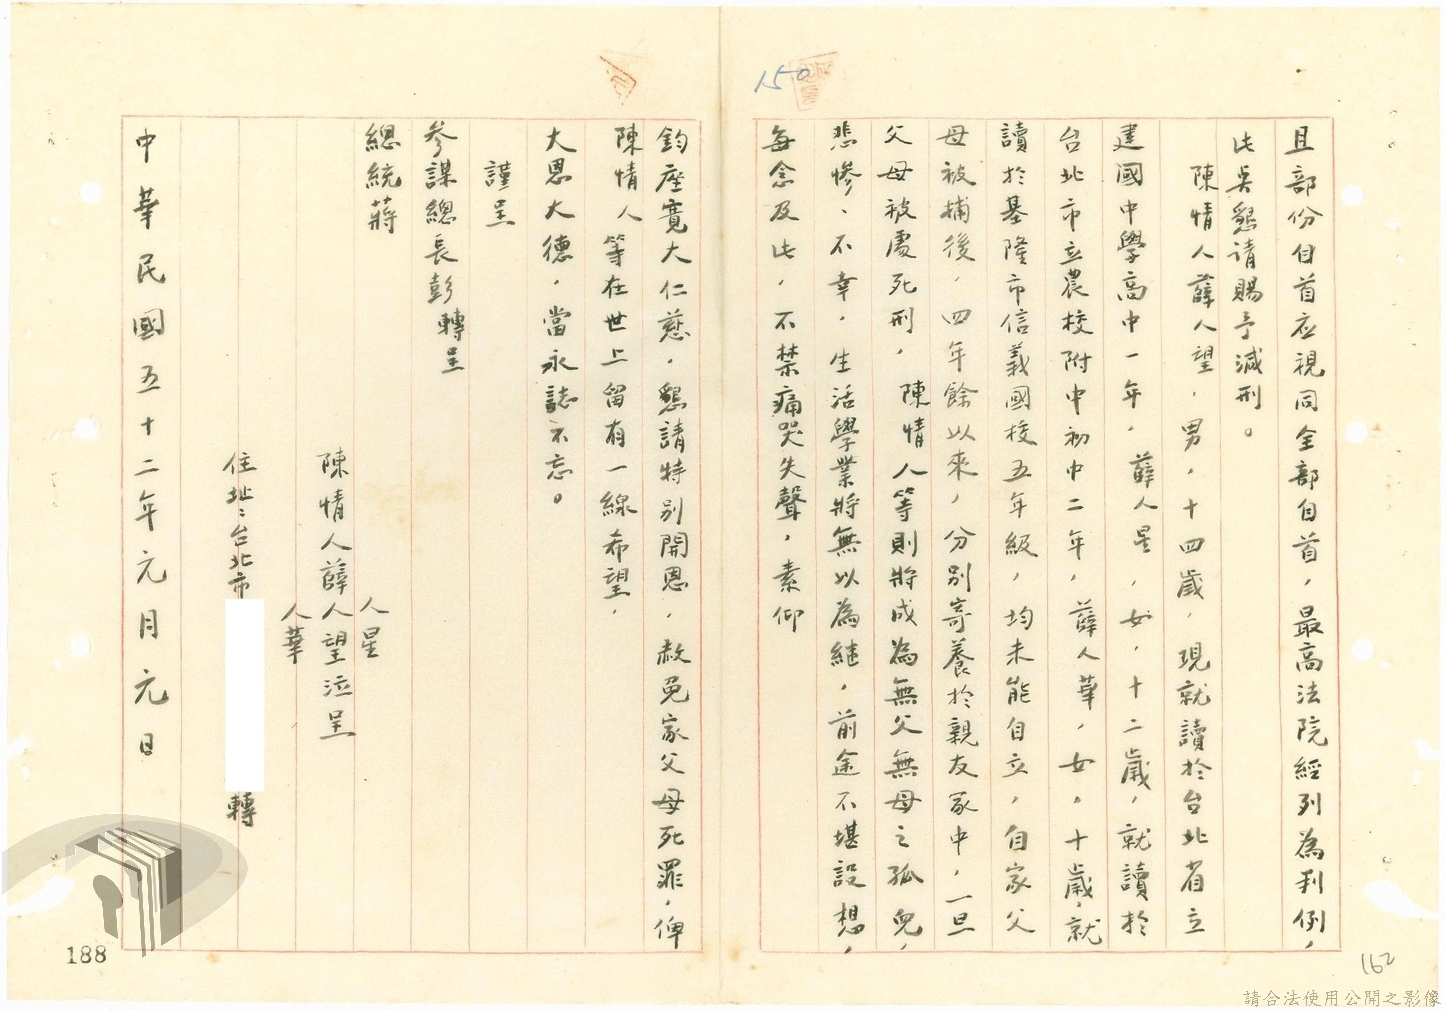 150
且部份自首应視同全部自首，最高法院經列為判例，
此吳懇請賜予減刑。
陳情人薛人望，男，十四歲，現就讀於台北省立
建國中學高中一年，薛人星，女，十二歲，就讀於
台北市立農校附中初中二年，薛人華，女，十歲，就
讀於基隆市信義國校五年級，均未能自立，自家父
母被捕後，四年餘以來，分別寄養於親友家中，一旦
父母被處死刑，陳情人等則將成為無父無母之孤兒，
悲慘、不幸，生活學業將無以為継，前途不堪設想，
每念及此，不禁痛哭失聲，素仰
鈞座寬大仁慈，懇請特別開恩，赦免家父母死罪，俾
陳情人等在世上留有一線希望，
大恩大德，當永誌不忘。
謹呈
參謀總長彭 轉呈
總統蔣
人星
陳情人薛人望泣呈
人華
住址：台北市
轉
中華民國五十二年元月元日
188
162
請合法使用公開之影像